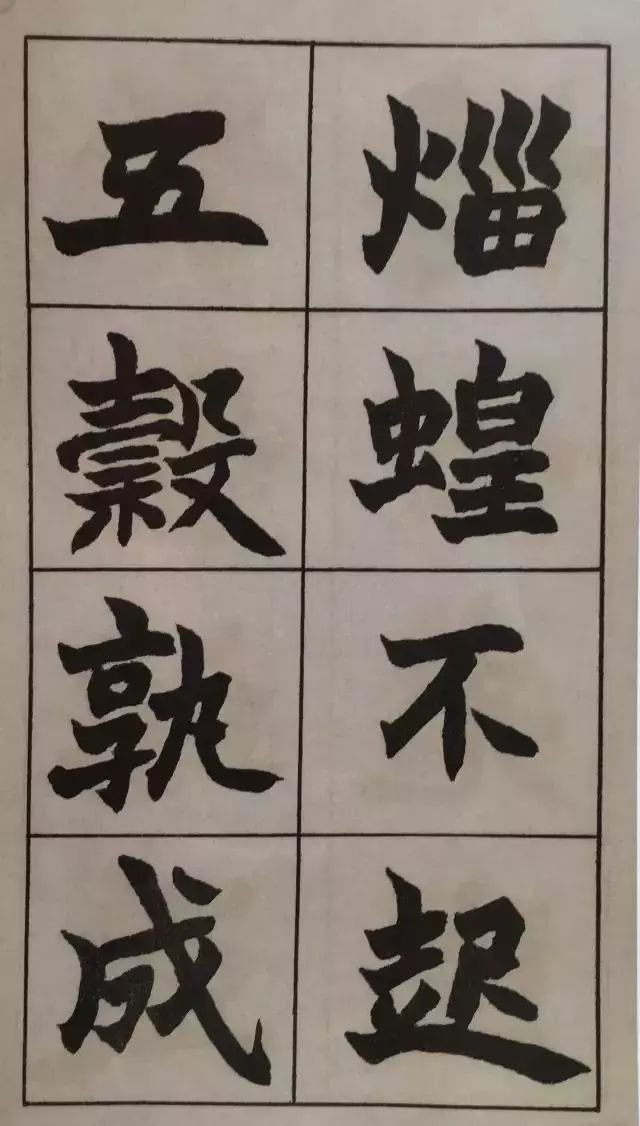 蝗不起
五穀孰成